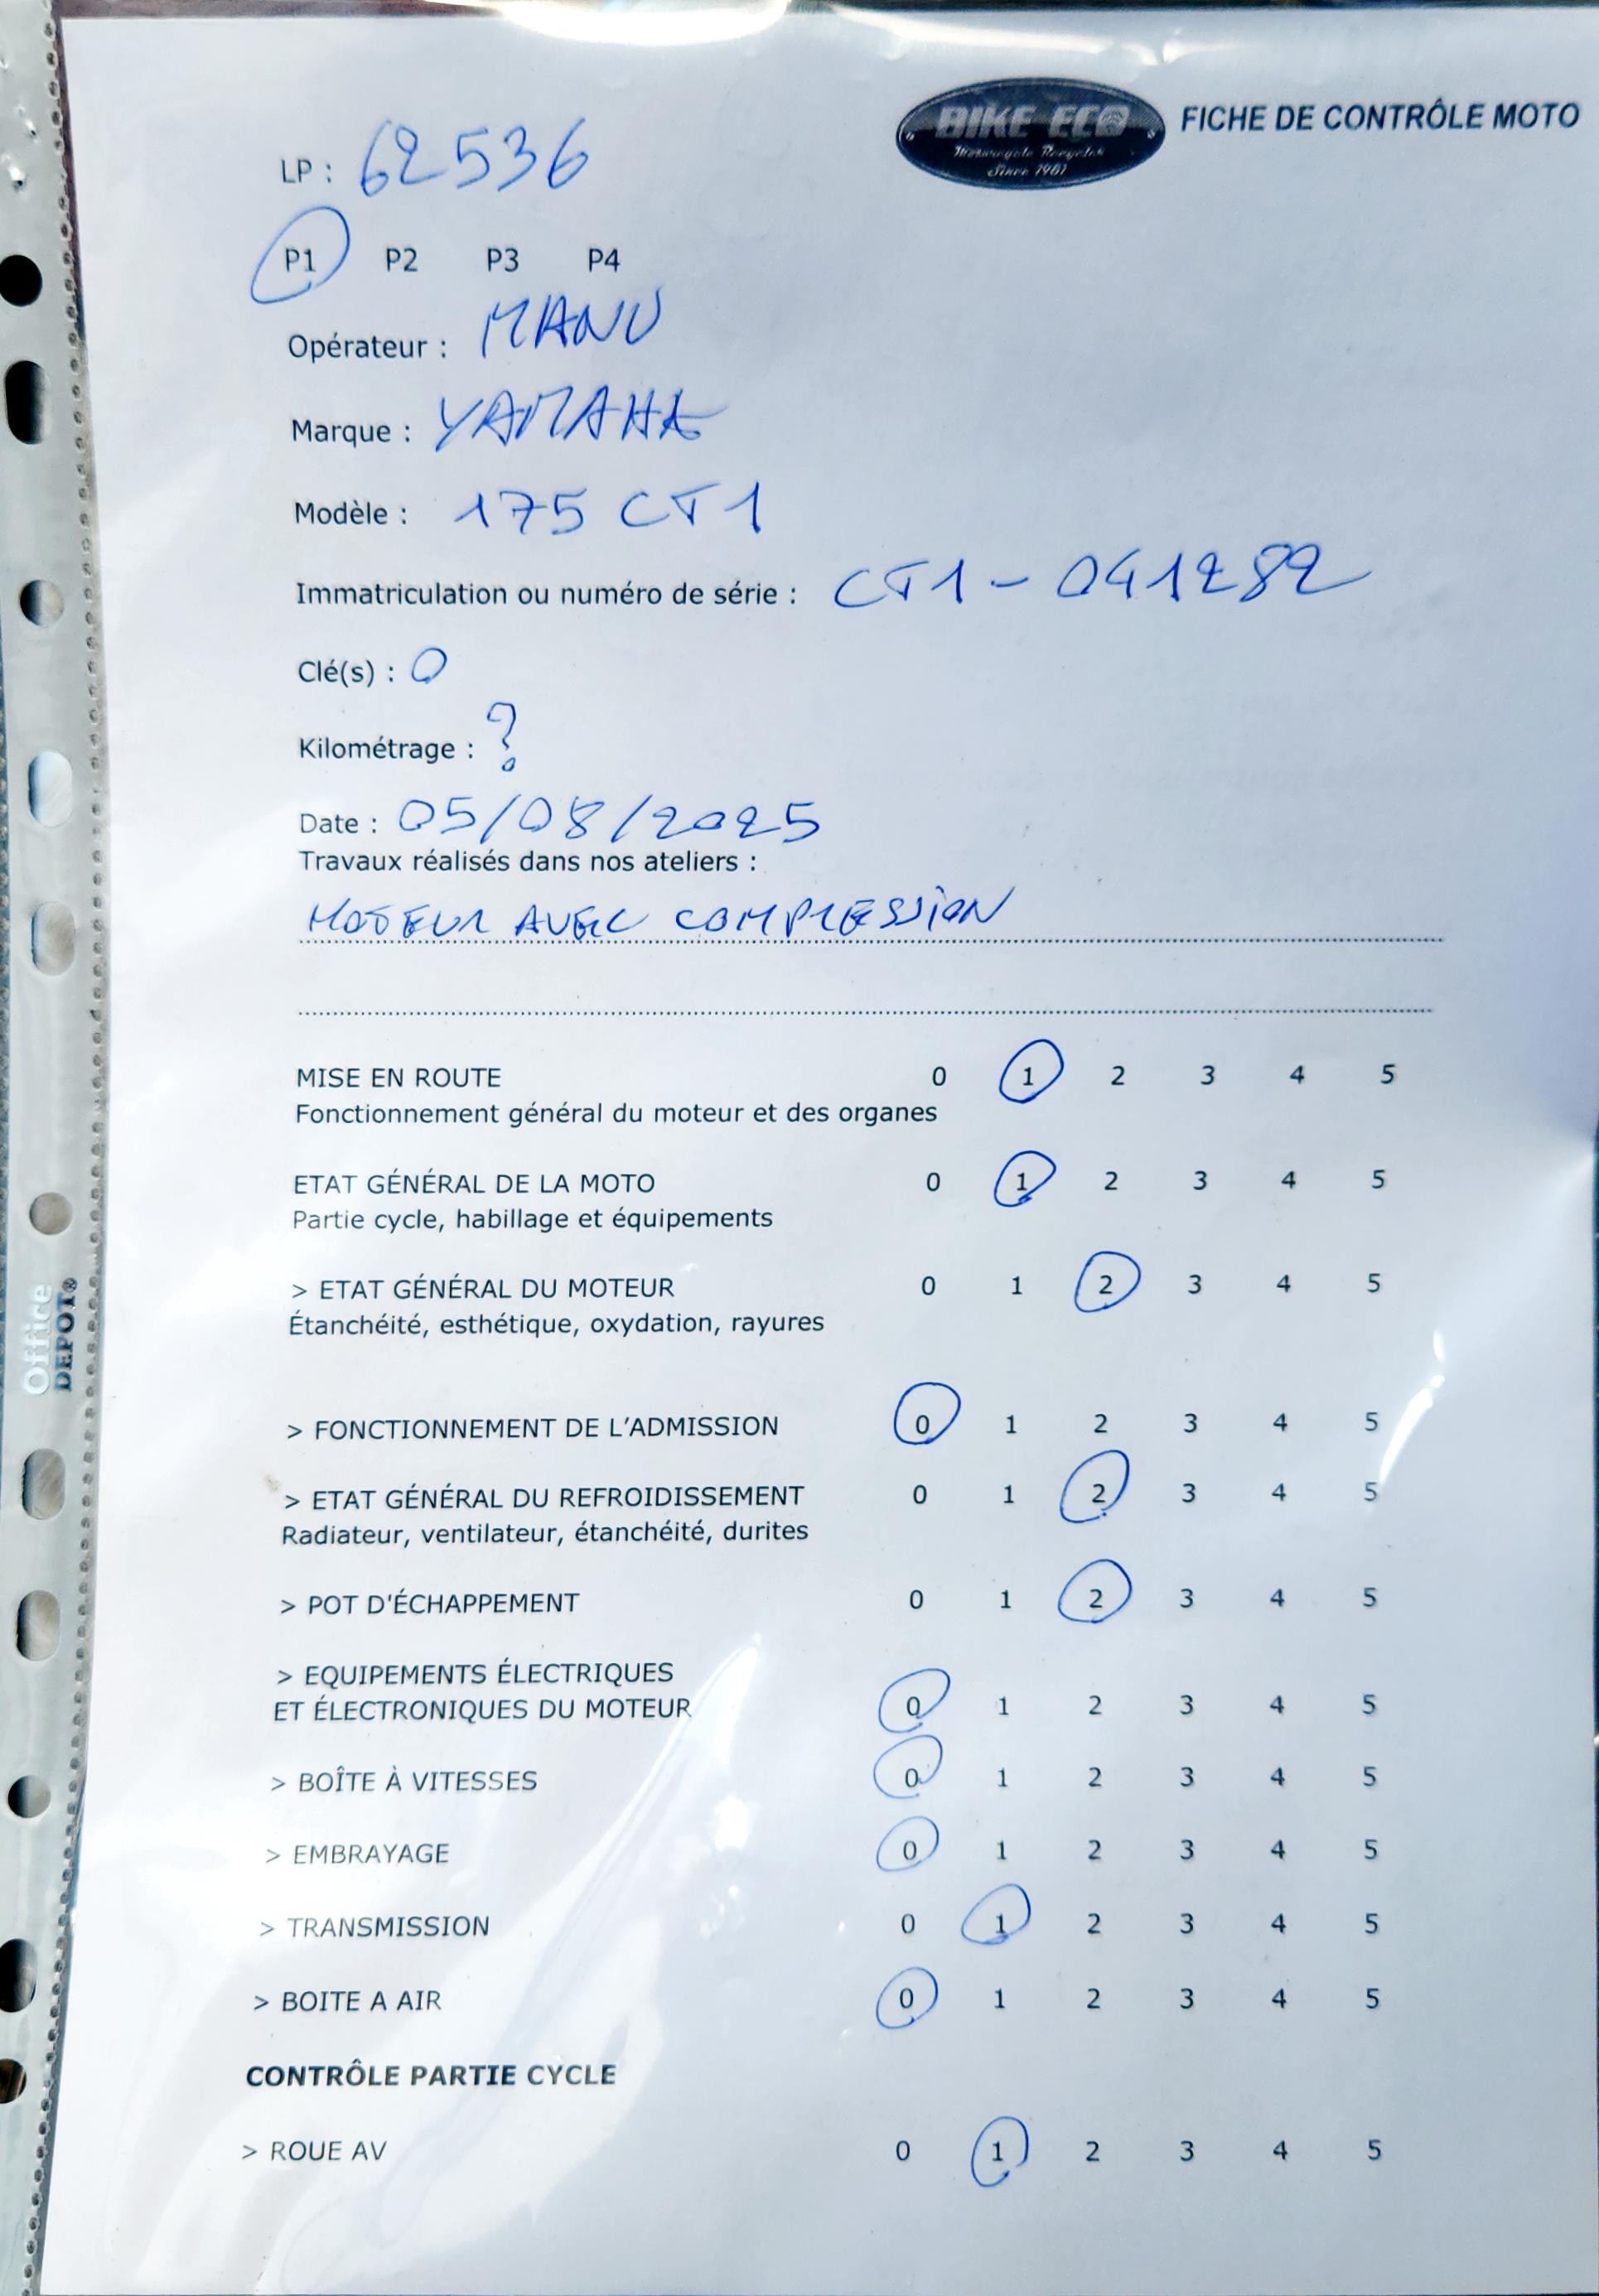 BIKE ECO
Motorcycle Recycler
Since 1961
FICHE DE CONTRÔLE MOTO
LP : 62536
P1 P2 P3 P4
Opérateur : MANU
Marque : YAMAHA
Modèle : 175 CT1
Immatriculation ou numéro de série : CT1-041282
Clé(s) : 0
Kilométrage : ?
Date : 05/08/2025
Travaux réalisés dans nos ateliers :
MOTEUR AVEC COMPRESSION
MISE EN ROUTE 0 1 2 3 4 5
Fonctionnement général du moteur et des organes
ETAT GÉNÉRAL DE LA MOTO 0 1 2 3 4 5
Partie cycle, habillage et équipements
> ETAT GÉNÉRAL DU MOTEUR 0 1 2 3 4 5
Étanchéité, esthétique, oxydation, rayures
> FONCTIONNEMENT DE L'ADMISSION 0 1 2 3 4 5
> ETAT GÉNÉRAL DU REFROIDISSEMENT 0 1 2 3 4 5
Radiateur, ventilateur, étanchéité, durites
> POT D'ÉCHAPPEMENT 0 1 2 3 4 5
> EQUIPEMENTS ÉLECTRIQUES
ET ÉLECTRONIQUES DU MOTEUR 0 1 2 3 4 5
> BOÎTE À VITESSES 0 1 2 3 4 5
> EMBRAYAGE 0 1 2 3 4 5
> TRANSMISSION 0 1 2 3 4 5
> BOITE A AIR 0 1 2 3 4 5
CONTRÔLE PARTIE CYCLE
> ROUE AV 0 1 2 3 4 5
Office
DEPOT®